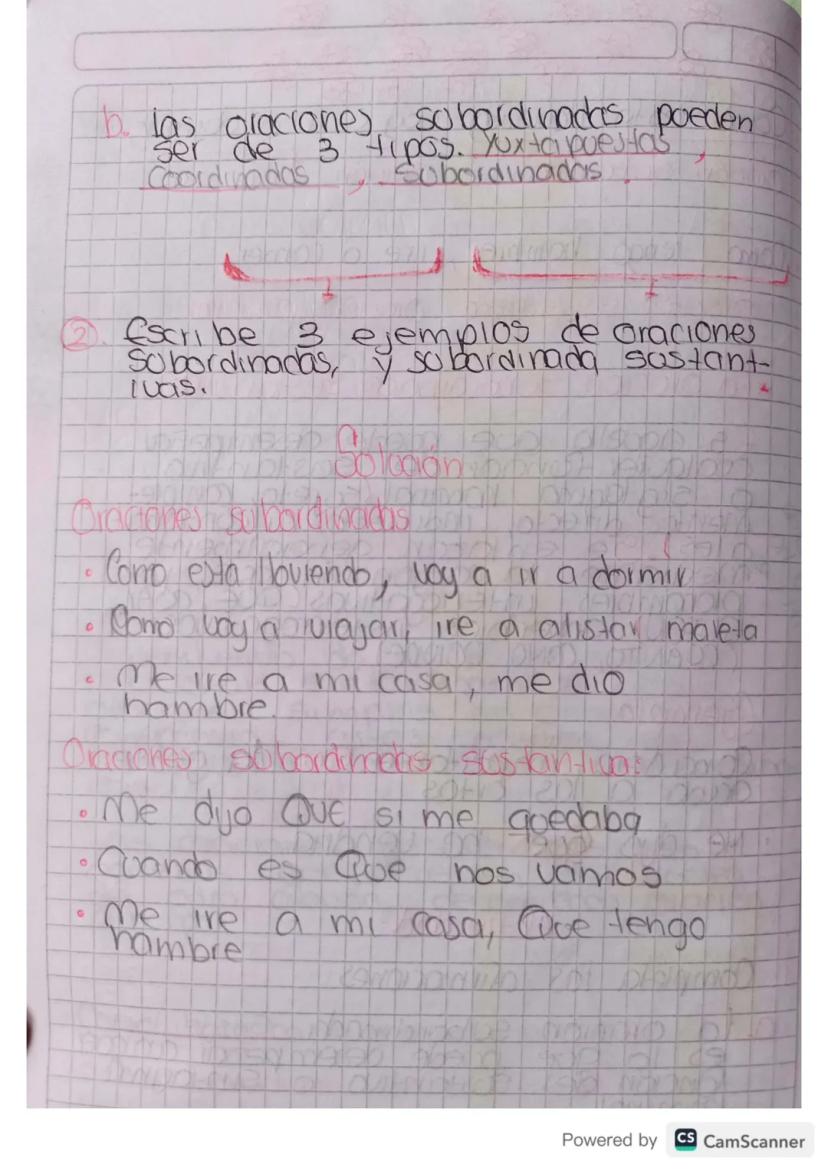 b. las oraciones subordinadas pueden
ser de 3 tipos. Yuxtapuestas,
Coordinadas, Subordinadas.
② Escribe 3 ejemplos de oraciones
subordinadas, y subordinada sustant-
ivas.
Solución
Oraciones subordinadas
• Como esta lloviendo, voy a ir a dormir
• Como voy a viajar, ire a alistar maleta
• Me ire a mi casa, me dio
hambre.
Oraciones subordinadas sustantiva:
• Me dijo Que si me quedaba
• Cuando es Que nos vamos
• Me ire a mi casa, Que tengo
hambre
Powered by CS CamScanner